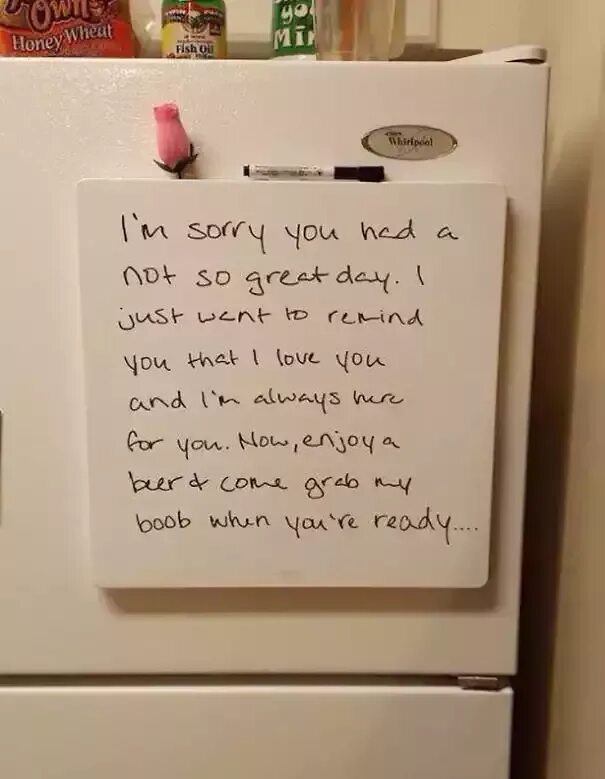 Own
Honey Wheat
Fish Oil
yo
Min
Whirlpool
I'm sorry you had a
not so great day. I
just want to remind
you that I love you
and I'm always here
for you. Now, enjoy a
beer & come grab my
boob when you're ready....